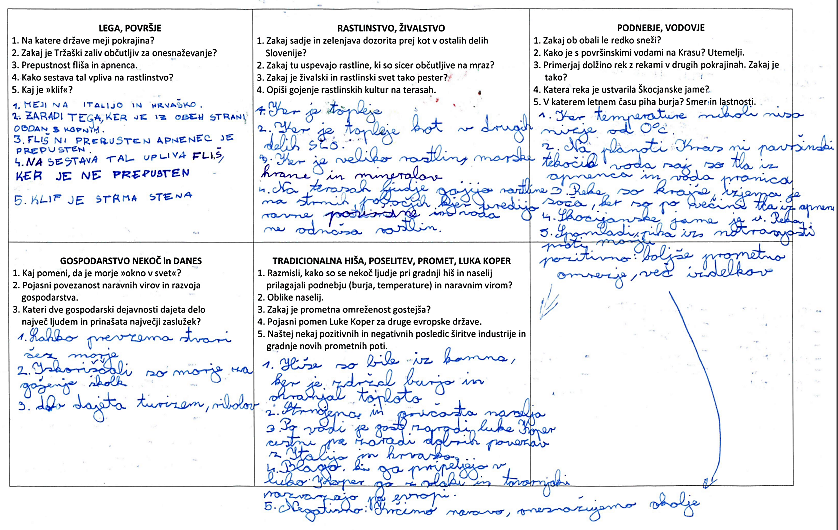 LEGA, POVRŠJE
1. Na katere države meji pokrajina?
2. Zakaj je Tržaški zaliv občutljiv za onesnaževanje?
3. Prepustnost fliša in apnenca.
4. Kako sestava tal vpliva na rastlinstvo?
5. Kaj je »klif«?
1. MEJI NA ITALIJO IN HRVAŠKO.
2. ZARADI TEGA, KER JE IZ OBEH STRANI
OBDAN S KOPNIM.
3. FLIŠ NI PREPUSTEN APNENEC JE
PREPUSTEN.
4. NA SESTAVA TAL VPLIVA FLIŠ,
KER JE NE PREPUSTEN
5. KLIF JE STRMA STENA
RASTLINSTVO, ŽIVALSTVO
1. Zakaj sadje in zelenjava dozorita prej kot v ostalih delih
Slovenije?
2. Zakaj tu uspevajo rastline, ki so sicer občutljive na mraz?
3. Zakaj je živalski in rastlinski svet tako pester?
4. Opiši gojenje rastlinskih kultur na terasah.
1. Ker je topleje
2. Ker je topleje kot v drugih
delih SLO.
3. Ker je veliko rastlin, morske
hrane in mineralov
4. Na terasah ljudje gojijo rastline
na strmih pobočjih kjer uredijo
ravne površine in voda
ne odnaša rastlin.
PODNEBJE, VODOVJE
1. Zakaj ob obali le redko sneži?
2. Kako je s površinskimi vodami na Krasu? Utemelji.
3. Primerjaj dolžino rek z rekami v drugih pokrajinah. Zakaj je
tako?
4. Katera reka je ustvarila Škocjanske jame?
5. V katerem letnem času piha burja? Smer in lastnosti.
1. Ker temperature nikoli niso
nižje od 0°C
2. Na planoti Kras ni površinski
tekočih voda saj so tla iz
apnenca in voda pronica
3. Reke so krajše, izjema je
soča, ker so po večina tla iz apnenca
4. Škocjanske jame je u. Reka
5. Spomladi, piha iz notranjosti
proti morju
GOSPODARSTVO NEKOČ in DANES
1. Kaj pomeni, da je morje »okno v svet«?
2. Pojasni povezanost naravnih virov in razvoja
gospodarstva.
3. Kateri dve gospodarski dejavnosti dajeta delo
največ ljudem in prinašata največji zaslužek?
1. Lahko prevzema stvari
čez morje
2. Izkoriščali so morje za
gojenje školk
3. dajeta turizem, ribolov
TRADICIONALNA HIŠA, POSELITEV, PROMET, LUKA KOPER
1. Razmisli, kako so se nekoč ljudje pri gradnji hiš in naselij
prilagajali podnebju (burja, temperature) in naravnim virom?
2. Oblike naselij.
3. Zakaj je prometna omreženost gostejša?
4. Pojasni pomen Luke Koper za druge evropske države.
5. Naštej nekaj pozitivnih in negativnih posledic širitve industrije in
gradnje novih prometnih poti.
1. Hiše so bile iz kamna,
ker je zdržal burjo in
ohranjal toploto
2. Strnjena, in gručasta naselja
3. Po vodi je gost zaradi luke Koper
cestni pa zaradi dobrih povezav
z Italijo in hrvaško
4. Blago, ki ga pripeljejo v
luko Koper ga z vlaki in tovornjaki
razvažajo po evropi.
5. Negativno: Krčimo naravo, onesnažujemo okolje
pozitivno: boljše prometno
omrežje, več izdelkov